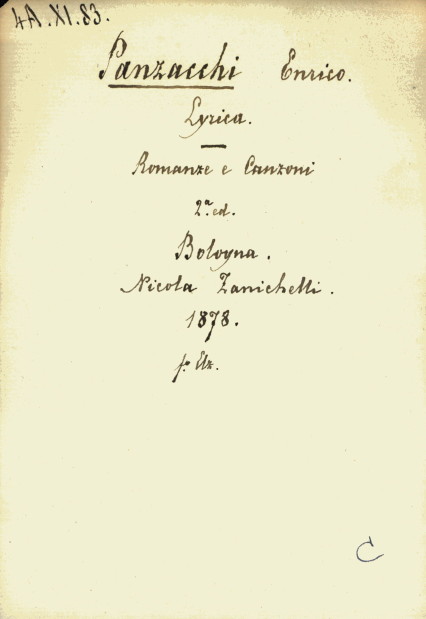 4A.XI.83.
Panzacchi Enrico.
Lyrica.
Romanze e Canzoni
2.ª ed.
Bologna.
Nicola Zanichelli.
1878.
f.º Elz.
C